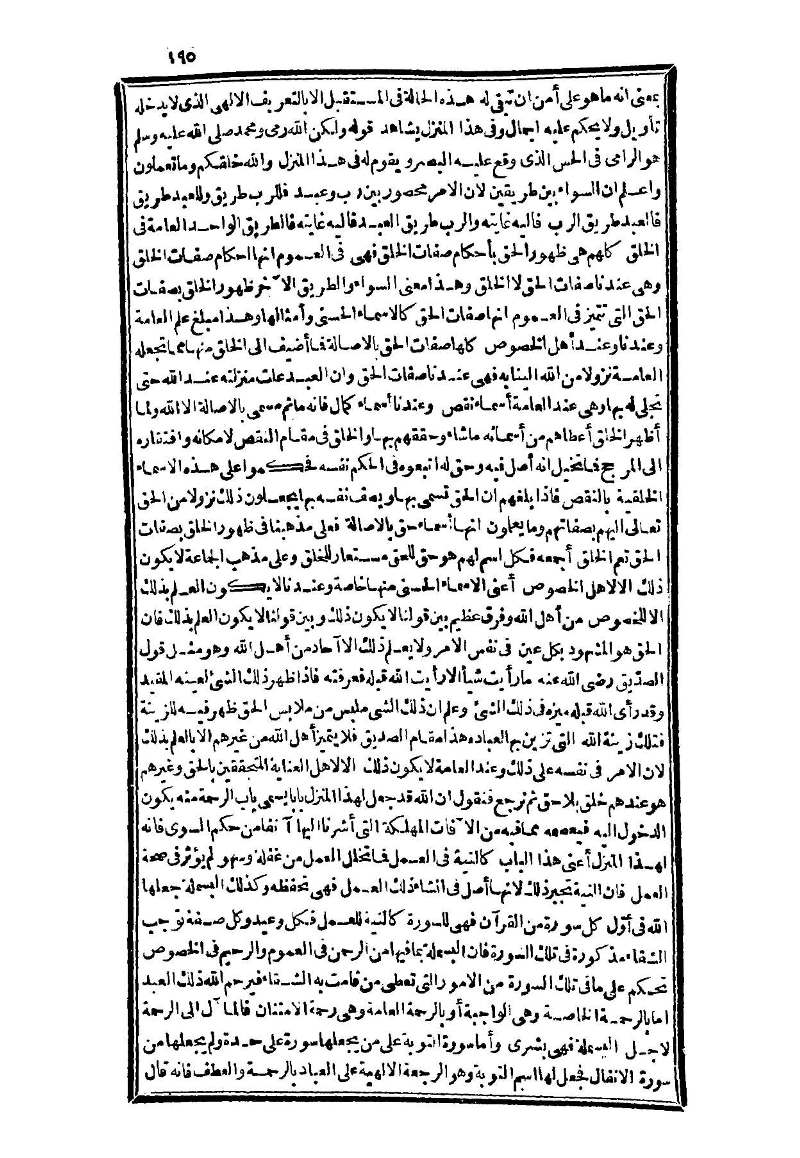 ١٩٥
بمعنى انه ما هو على أمن ان تبقى له هذه الحالة فى المستقبل الا بالتعريف الالهى الذى لا يدخله
تأويل ولا يحكم عليه اجمال وفى هذا المنزل يشاهد قوله ولكن الله رمى ومحمد صلى الله عليه وسلم
هو الرامى فى الحس الذى وقع عليه البصر ويقوم له فى هذا المنزل والله خلقكم وما تعملون
واعلم ان السواء بين طريقين لان الامر محصور بين رب وعبد فللرب طريق وللعبد طريق
فالعبد طريق الرب فاليه غايته والرب طريق العبد فاليه غايته فالطريق الواحد العامة فى
الخلق كلهم هى ظهور الحق بأحكام صفات الخلق فهى فى العموم انها احكام صفات الخلق
وهى عندنا صفات الحق لا الخلق وهذا معنى السواء والطريق الآخر ظهور الخلق بصفات
الحق التى تتميز فى العموم انها صفات الحق كالاسماء الحسنى وأمثالها وهذا مبلغ علم العامة
وعندنا وعند أهل الخصوص كلها صفات الحق بالاصالة فما أضيف الى الخلق منها مما تجعله
العامة نزولا من الله الينا به فهى عندنا صفات الحق وان العبد علت منزلته عند الله حتى
تحلى له بها وهى عند العامة أسماء نقص وعندنا أسماء كمال فانه ما ثم مسمى بالاصالة الا الله ولما
أظهر الخلق أعطاهم من أسمائه ماشاء وحققهم بها والخلق فى مقام النقص لامكانه وافتقاره
الى المرجح فما تخيل انه أصل فيه وحق له اتبعوه فى الحكم نفسه فحكموا على هذه الاسماء
الخلقية بالنقص فاذا بلغهم ان الحق تسمى بها ويصف نفسه بها يجعلون ذلك نزولا من الحق
تعالى اليهم بصفاتهم وما يعلمون انها أسماء حق بالاصالة فعلى مذهبنا فى ظهور الخلق بصفات
الحق تعم الخلق أجمعه فكل اسم لهم هو حق للحق مستعار للخلق وعلى مذهب الجماعة لا يكون
ذلك الا لاهل الخصوص أعنى الاسماء الحسنى منها خاصة وعندنا لا يكون العلم بذلك
الا للخصوص من أهل الله وفرق عظيم بين قولنا لا يكون ذلك وبين قولنا لا يكون العلم بذلك فان
الحق هو المشهود بكل عين فى نفس الامر ولا يعلم ذلك الا آحاد من أهل الله وهو مثل قول
الصديق رضى الله عنه ما رأيت شيأ الا رأيت الله قبله فعرفته فاذا ظهر ذلك الشئ لعينه المقيد
وقد رأى الله قبله ميزه فى ذلك الشئ وعلم ان ذلك الشئ ملبس من ملابس الحق ظهر فيه للزينة
فتلك زينة الله التى تزين بها لعباده هذا مقام الصديق فلا يتميز أهل الله من غيرهم الا بالعلم بذلك
لان الامر فى نفسه على ذلك وعند العامة لا يكون ذلك الا لاهل العناية المتحققين بالحق وغيرهم
هو عندهم خلق بلا حق ثم نرجع فنقول ان الله قد جعل لهذا المنزل بابا يسمى باب الرحمة منه يكون
الدخول اليه فيعصمه مما فيه من الآفات المهلكة التى أشرنا اليها آنفا من حكم السوى فانه
لهذا المنزل أعنى هذا الباب كالنية فى العمل فما تخلل العمل من غفلة وسهو لم يؤثر فى صحة
العمل فان النية تجبر ذلك لانها أصل فى انشاء ذلك العمل فهى تحفظه وكذلك البسملة جعلها
الله فى أول كل سورة من القرآن فهى للسورة كالنية للعمل فكل وعيد وكل صفة توجب
الشقاء مذكورة فى تلك السورة فان البسملة بما فيها من الرحمن فى العموم والرحيم فى الخصوص
تحكم على ما فى تلك السورة من الامور التى تعطى من قامت به الشقاء فيرحم الله ذلك العبد
اما بالرحمة الخاصة وهى الواجبة أو بالرحمة العامة وهى رحمة الامتنان فالمآل الى الرحمة
لاجل البسملة فهى بشرى وأما سورة التوبة على من يجعلها سورة على حدة ولم يجعلها من
سورة الانفال فجعل لها اسم التوبة وهو الرجعة الالهية على العباد بالرحمة والعطف فانه قال